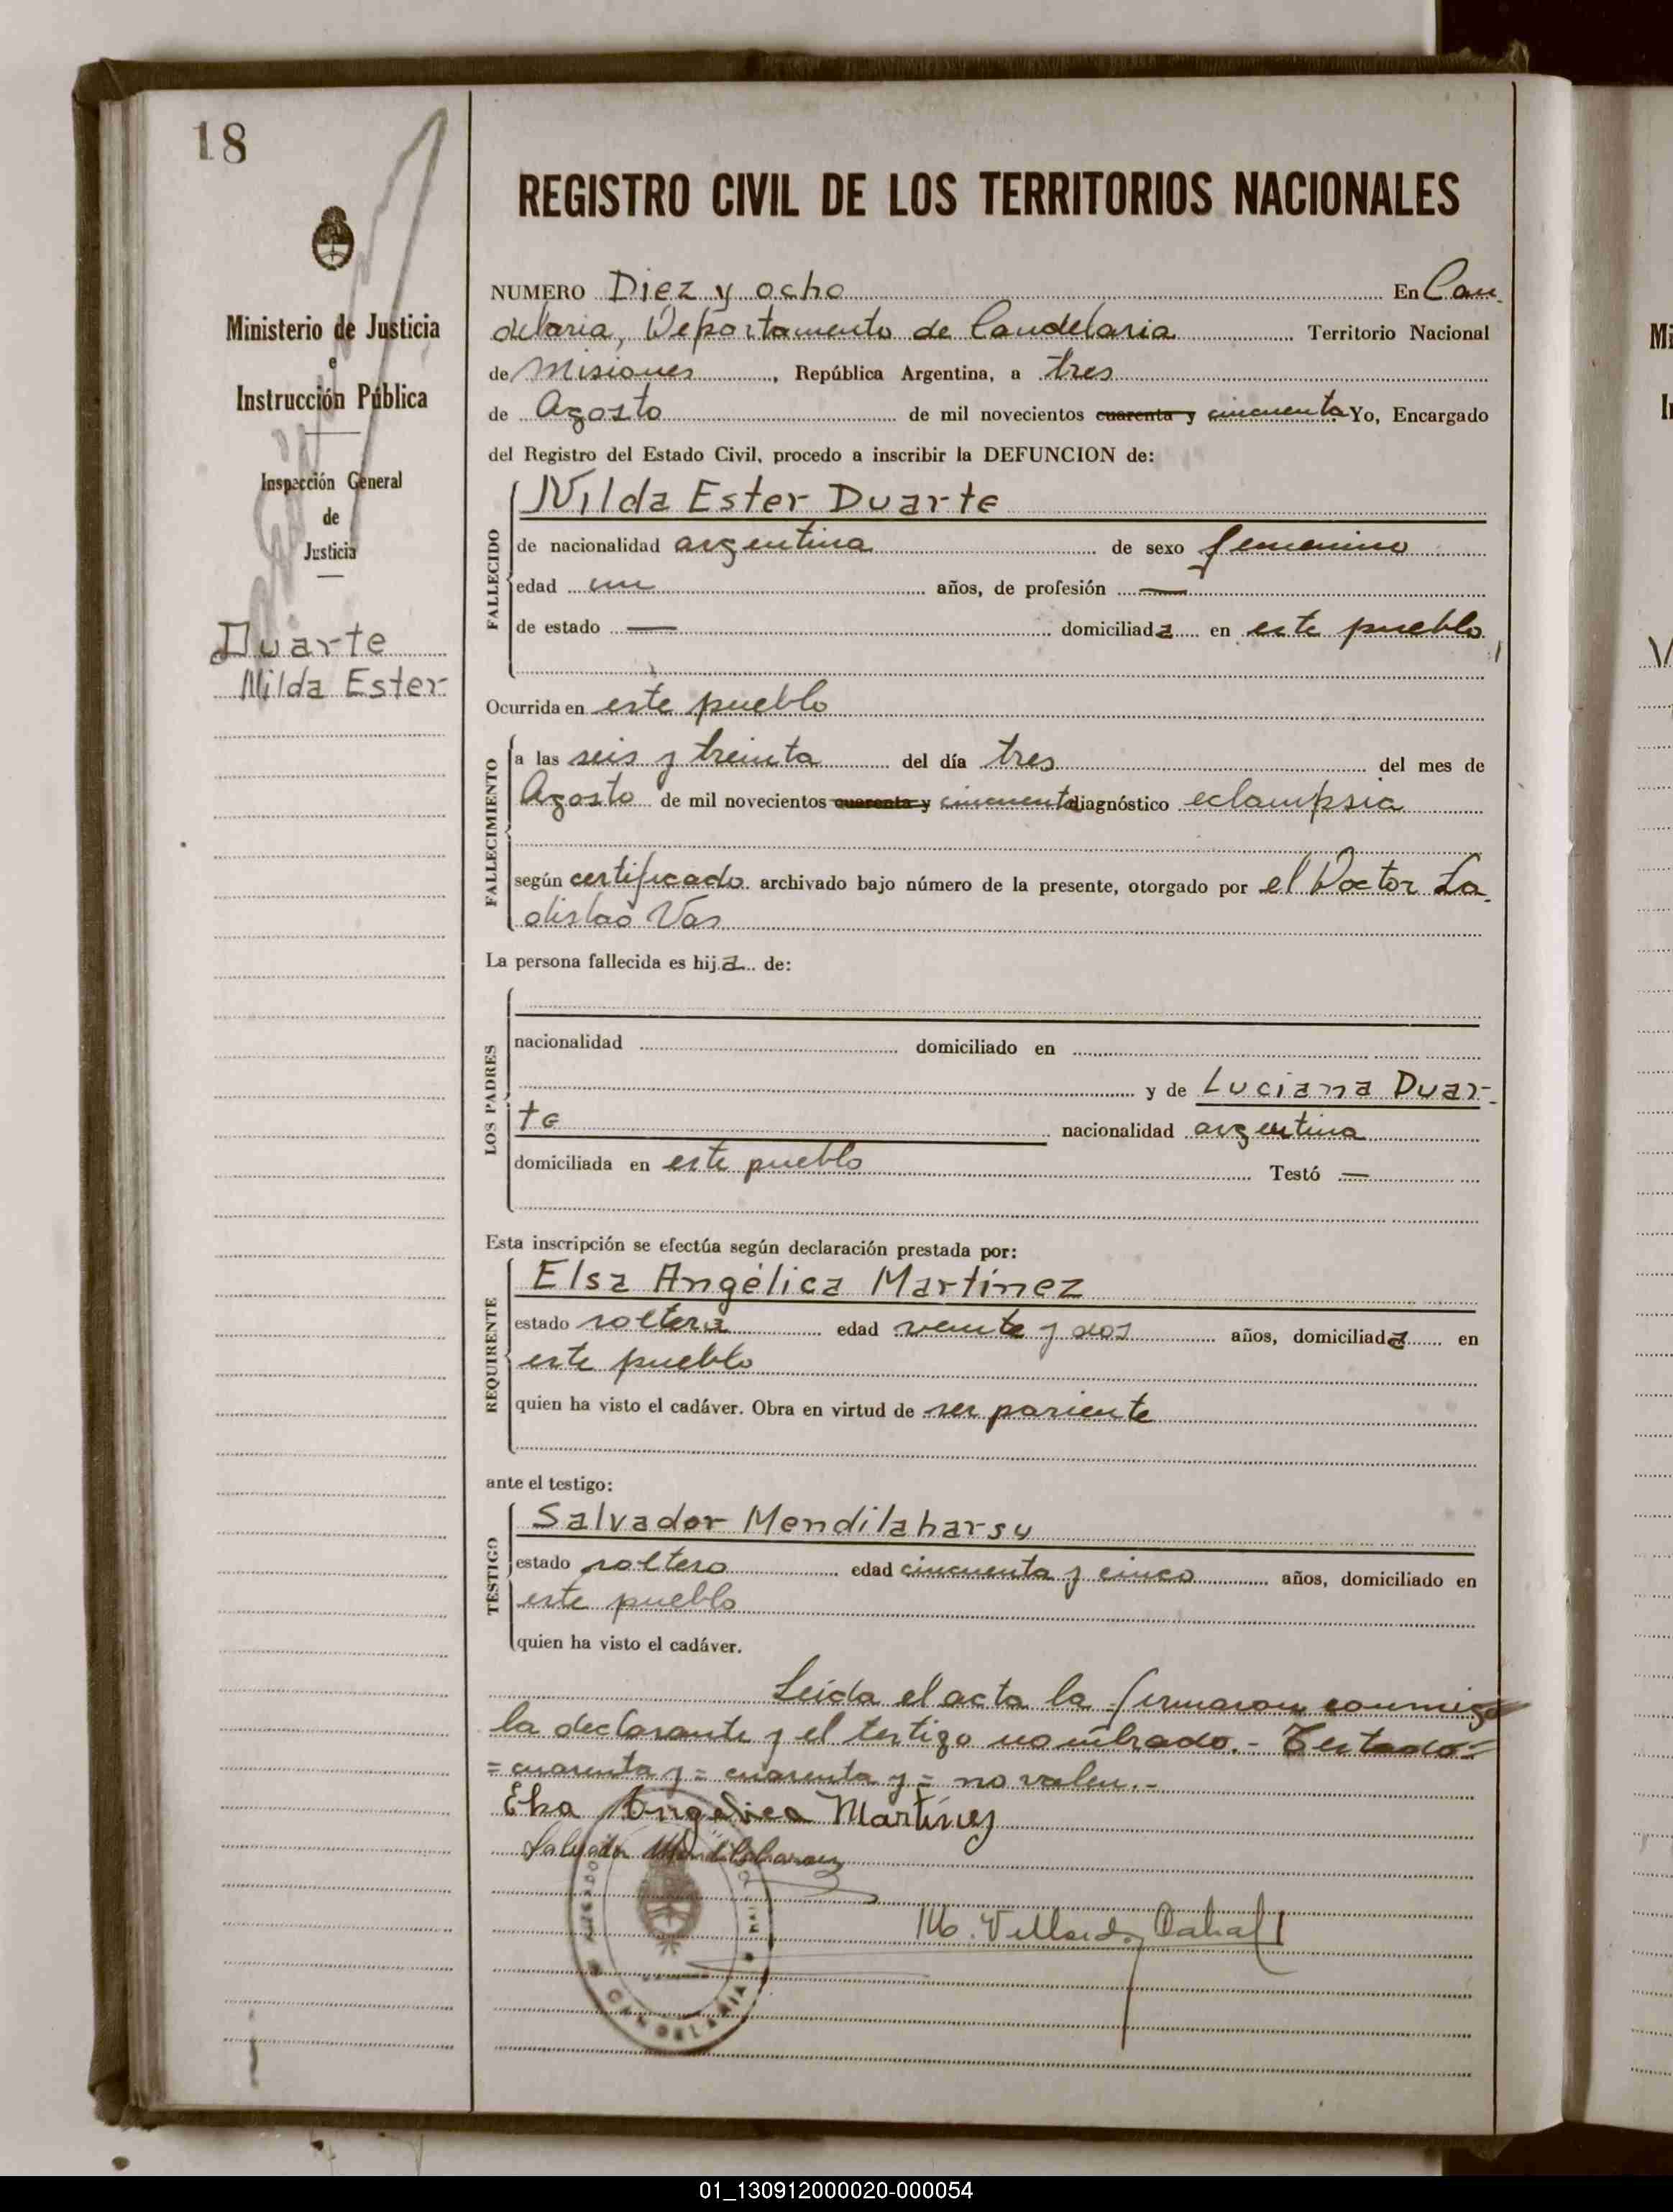 18
Ministerio de Justicia
e
Instrucción Pública
Inspección General
de
Justicia
Duarte
Nilda Ester
REGISTRO CIVIL DE LOS TERRITORIOS NACIONALES
NUMERO Diez y ocho En Can-
delaria, Departamento de Candelaria Territorio Nacional
de Misiones, República Argentina, a tres
de Agosto de mil novecientos cuarenta y cincuenta Yo, Encargado
del Registro del Estado Civil, procedo a inscribir la DEFUNCION de:
FALLECIDO
Nilda Ester Duarte
de nacionalidad argentina de sexo femenino
edad un años, de profesión —
de estado — domiciliada en este pueblo
Ocurrida en este pueblo
FALLECIMIENTO
a las seis y treinta del día tres del mes de
Agosto de mil novecientos cuarenta y cincuenta diagnóstico eclampsia
según certificado archivado bajo número de la presente, otorgado por el Doctor La-
dislao Vas
La persona fallecida es hija de:
LOS PADRES
nacionalidad domiciliado en
y de Luciana Duar-
te nacionalidad argentina
domiciliada en este pueblo Testó —
Esta inscripción se efectúa según declaración prestada por:
REQUIRENTE
Elsa Angélica Martínez
estado soltera edad veinte y dos años, domiciliada en
este pueblo
quien ha visto el cadáver. Obra en virtud de ser pariente
ante el testigo:
TESTIGO
Salvador Mendilaharsu
estado soltero edad cincuenta y cinco años, domiciliado en
este pueblo
quien ha visto el cadáver.
Leída el acta la firmaron conmigo
la declarante y el testigo nombrado.- Testado=
=cuarenta y= cuarenta y= no valen.-
Elsa Angelica Martínez
Salvador Mendilaharsu
M. Cabral
CANDELARIA
01_130912000020-000054